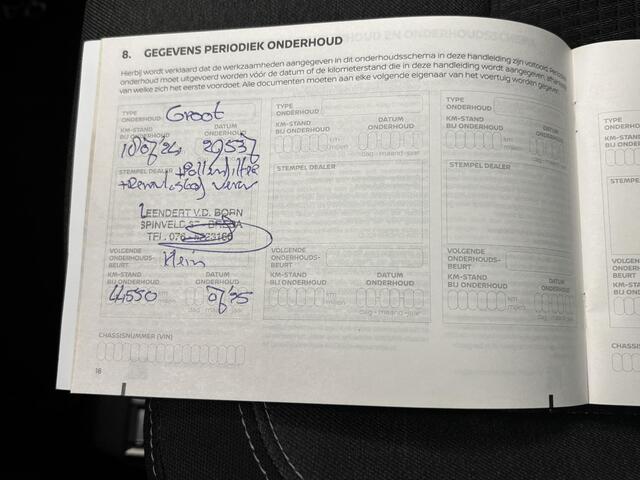 8. GEGEVENS PERIODIEK ONDERHOUD
Hierbij wordt verklaard dat de werkzaamheden aangegeven in dit onderhoudsschema in deze handleiding zijn voltooid. Periodiek
onderhoud moet uitgevoerd worden vóór de datum of de kilometerstand die in deze handleiding wordt aangegeven, afhankelijk
van welke zich het eerste voordoet. Alle documenten moeten aan elke volgende eigenaar van het voertuig worden gegeven.
TYPE
ONDERHOUD Groot
KM-STAND
BIJ ONDERHOUD
DATUM
ONDERHOUD
29537
STEMPEL DEALER + Pollenfilter
LEENDERT V.D. BORN
SPINVELD BREDA
TEL. 076
VOLGENDE
ONDERHOUDS-
BEURT
Klein
KM-STAND
BIJ ONDERHOUD
DATUM
ONDERHOUD
44550
dag - maand - jaar
TYPE
ONDERHOUD
KM-STAND
BIJ ONDERHOUD
DATUM
ONDERHOUD
km
mijlen
dag - maand - jaar
STEMPEL DEALER
VOLGENDE
ONDERHOUDS-
BEURT
KM-STAND
BIJ ONDERHOUD
DATUM
ONDERHOUD
km
mijlen
dag - maand - jaar
TYPE
ONDERHOUD
KM-STAND
BIJ ONDERHOUD
DATUM
ONDERHOUD
km
mijlen
dag - maand - jaar
STEMPEL DEALER
VOLGENDE
ONDERHOUDS-
BEURT
KM-STAND
BIJ ONDERHOUD
DATUM
ONDERHOUD
km
mijlen
dag - maand - jaar
CHASSISNUMMER (VIN)
18